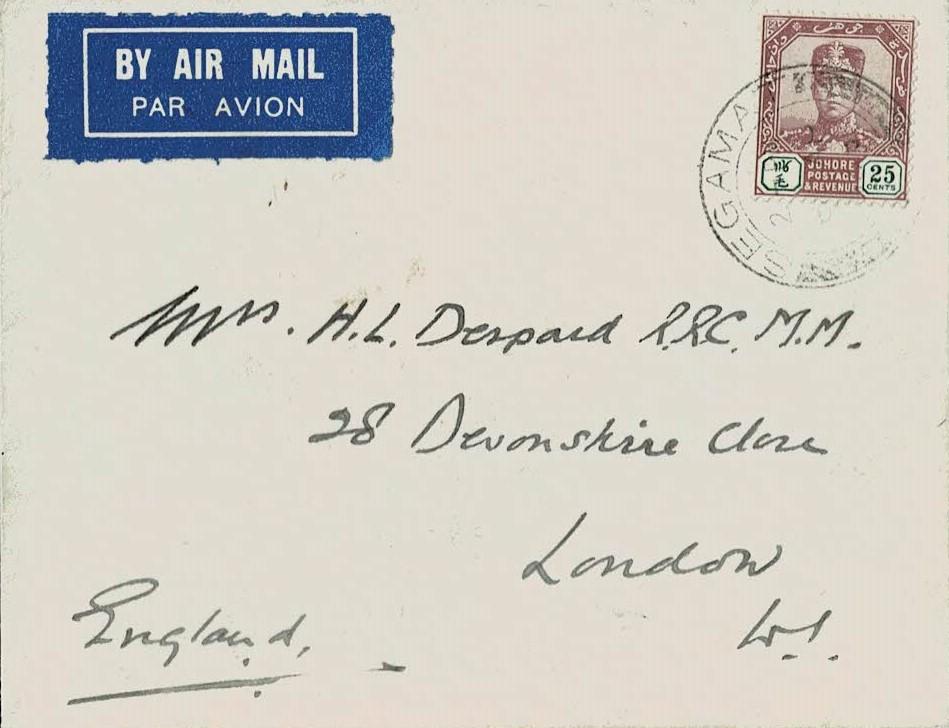 BY AIR MAIL
PAR AVION
SEGAMAT
JOHORE
POSTAGE
& REVENUE
25
CENTS
Mrs. H.L. Despard R.R.C. M.M.
28 Devonshire Close
London
W.1.
England.